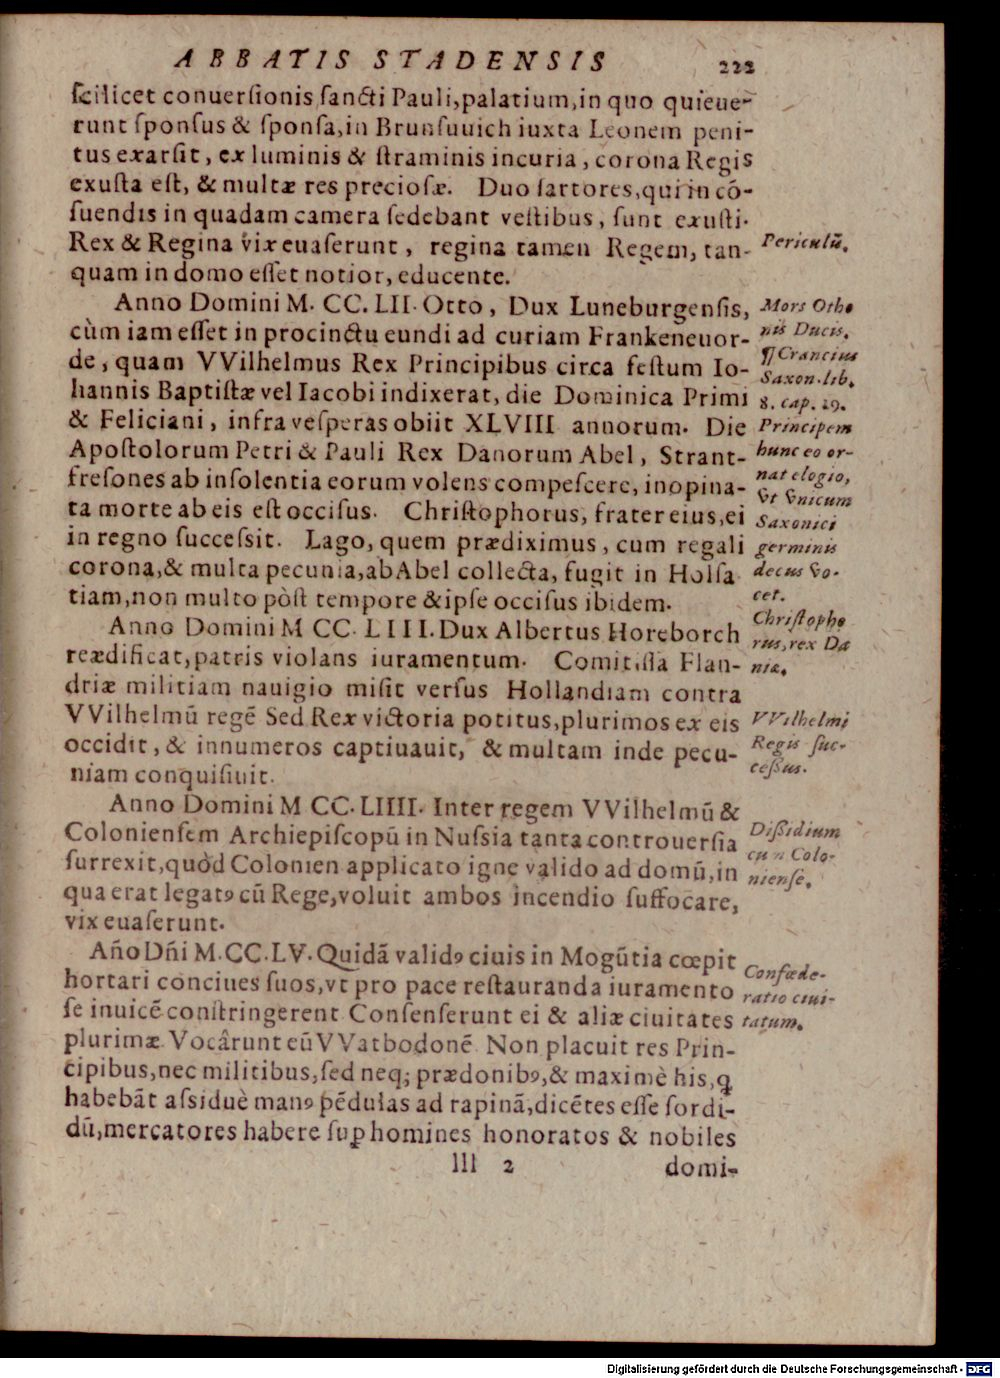 ABBATIS STADENSIS 222
scilicet conuersionis sancti Pauli, palatium, in quo quieue-
runt sponsus & sponsa, in Brunsuuich iuxta Leonem peni-
tus exarsit, ex luminis & straminis incuria, corona Regis
exusta est, & multæ res preciosæ. Duo sartores, qui in cō-
suendis in quadam camera sedebant vestibus, sunt exusti.
Rex & Regina vix euaserunt, regina tamen Regem, tan-
quam in domo esset notior, educente.
Periculū.
Anno Domini M. CC. LII. Otto, Dux Luneburgensis,
cùm iam esset in procinctu eundi ad curiam Frankeneuor-
de, quam VVilhelmus Rex Principibus circa festum Io-
hannis Baptistæ vel Iacobi indixerat, die Dominica Primi
& Feliciani, infra vesperas obiit XLVIII annorum. Die
Apostolorum Petri & Pauli Rex Danorum Abel, Strant-
fresones ab insolentia eorum volens compescere, inopina-
ta morte ab eis est occisus. Christophorus, frater eius, ei
in regno successit. Lago, quem prædiximus, cum regali
corona, & multa pecunia, ab Abel collecta, fugit in Holsa
tiam, non multo pòst tempore & ipse occisus ibidem.
Mors Otho
nis Ducis.
¶ Crancius
Saxon. lib.
8. cap. 29.
Principem
hunc eo or-
nat elogio,
vt vnicum
Saxonici
germinis
decus vo-
cet.
Christopho
rus, rex Da
niæ.
Anno Domini M CC. LIII. Dux Albertus Horeborch
reædificat, patris violans iuramentum. Comitissa Flan-
driæ militiam nauigio misit versus Hollandiam contra
VVilhelmū regē Sed Rex victoria potitus, plurimos ex eis
occidit, & innumeros captiuauit, & multam inde pecu-
niam conquisiuit.
VVilhelmi
Regis suc-
cessus.
Anno Domini M CC. LIIII. Inter regem VVilhelmū &
Coloniensem Archiepiscopū in Nussia tanta controuersia
surrexit, quòd Colonien applicato igne valido ad domū, in
qua erat legatꝯ cū Rege, voluit ambos incendio suffocare,
vix euaserunt.
Dissidium
cum Colo-
niense.
Año Dñi M. CC. LV. Quidā validꝯ ciuis in Mogūtia cœpit
hortari conciues suos, vt pro pace restauranda iuramento
se inuicē constringerent Consenserunt ei & aliæ ciuitates
plurimæ Vocârunt eū VVatbodonē Non placuit res Prin-
cipibus, nec militibus, sed neq; prædonibꝯ, & maximè his, q
habebāt assiduè manꝯ pēdulas ad rapinā, dicētes esse sordi-
dū, mercatores habere suꝑ homines honoratos & nobiles
Confœde-
ratio ciui-
tatum.
lll 2 domi-
Digitalisierung gefördert durch die Deutsche Forschungsgemeinschaft - DFG